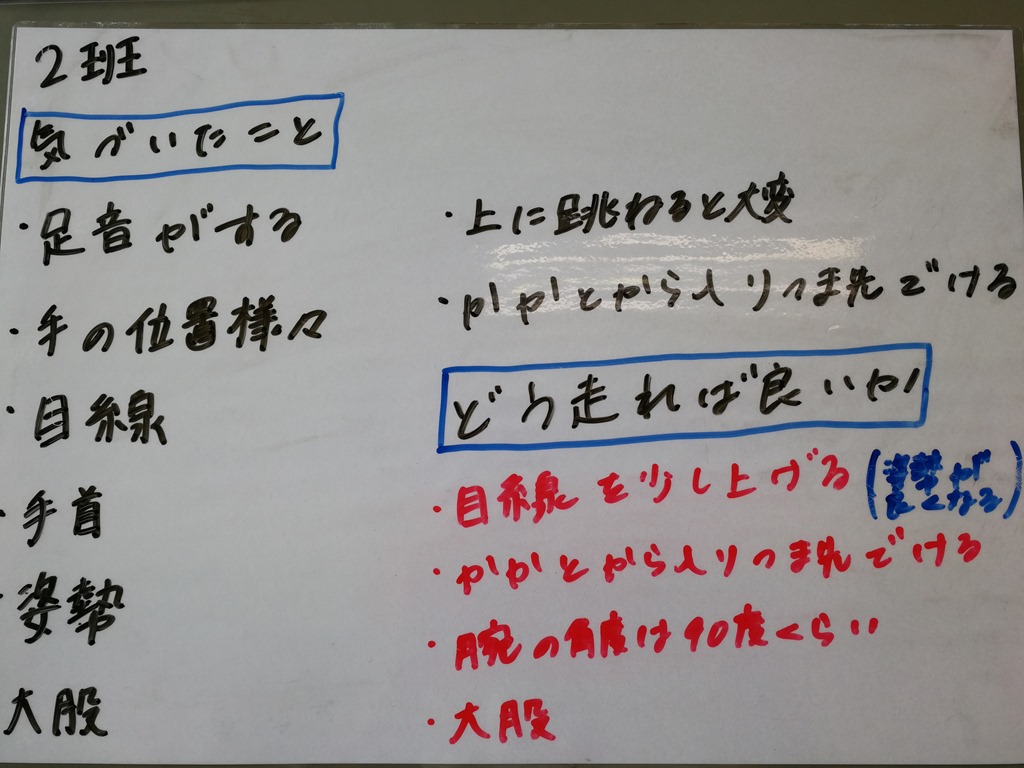 2班
気づいたこと
・足音がする
・手の位置様々
・目線
・手首
・姿勢
大股
・上に跳ねると大変
・かかとから入りつま先でける
どう走れば良いか
・目線を少し上げる(姿勢が良くなる)
・かかとから入りつま先でける
・腕の角度は90度くらい
・大股